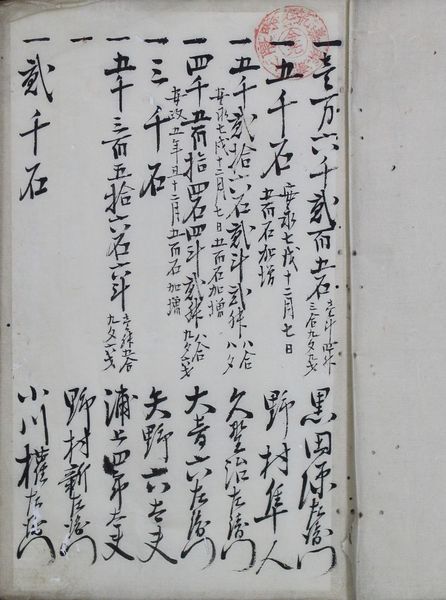 一壱万六千弐百五石 壱斗 三合九夕九才 黒田源左衛門
一五千石 安永七戌十二月七日 五百石加増 野村隼人
一五千弐拾六石弐斗弐升 八合 八夕 久野治左衛門
安永七戌十二月七日五百石加増
一四千五百拾四石四斗弐升 八合 九夕六才 大音六左衛門
安政五年十二月五百石加増
一三千石 矢野六太夫
一五千三百五拾六石六斗 壱升五合 九夕一才 浦上四郎太夫
一 野村新左衛門
一弐千石 小川権左衛門